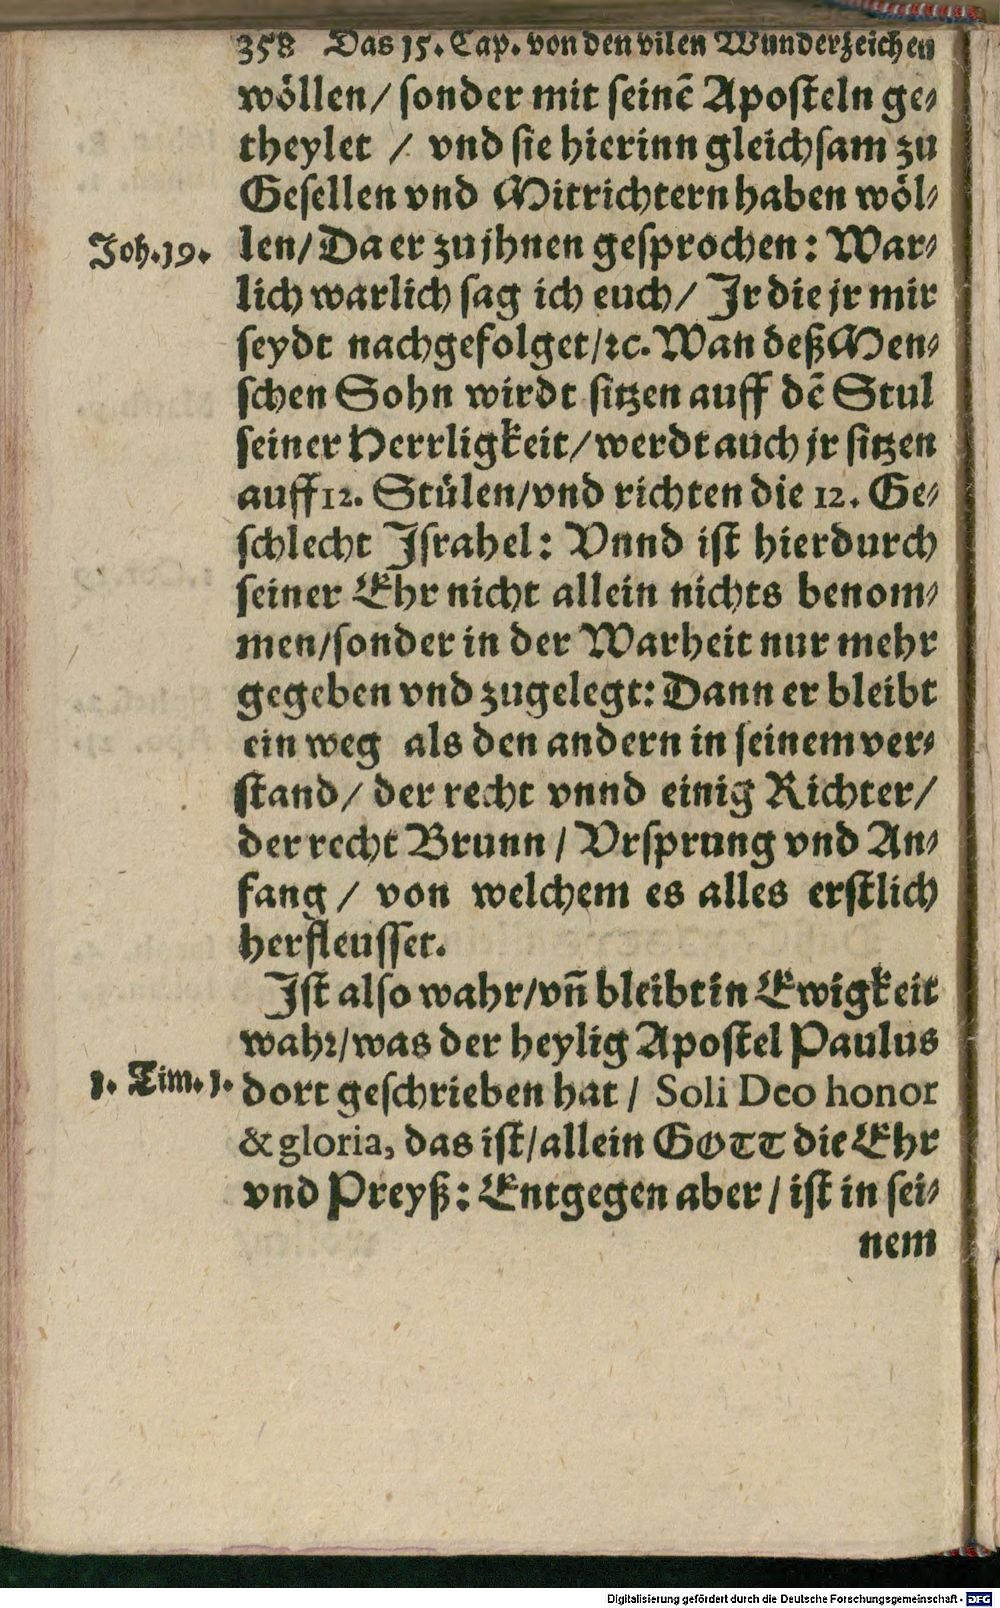 358 Das 15. Cap. von den vilen Wunderzeichen
wöllen/ sonder mit seinē Aposteln ge⸗
theylet / vnd sie hierinn gleichsam zu
Gesellen vnd Mitrichtern haben wöl⸗
Joh.19. len/ Da er zu jhnen gesprochen: War⸗
lich warlich sag ich euch/ Jr die jr mir
seydt nachgefolget/ꝛc. Wan deß Men⸗
schen Sohn wirdt sitzen auff dē Stul
seiner Herrligkeit/werdt auch jr sitzen
auff 12. Stülen/vnd richten die 12. Ge⸗
schlecht Jsrahel: Vnnd ist hierdurch
seiner Ehr nicht allein nichts benom⸗
men/sonder in der Warheit nur mehr
gegeben vnd zugelegt: Dann er bleibt
ein weg als den andern in seinem ver⸗
stand/ der recht vnnd einig Richter/
der recht Brunn / Vrsprung vnd An⸗
fang / von welchem es alles erstlich
herfleusset.
Jst also wahr/vn̄ bleibt in Ewigkeit
wahr/was der heylig Apostel Paulus
1. Tim. 1. dort geschrieben hat / Soli Deo honor
& gloria, das ist/allein GOTT die Ehr
vnd Preyß: Entgegen aber / ist in sei⸗
nem
Digitalisierung gefördert durch die Deutsche Forschungsgemeinschaft - DFG